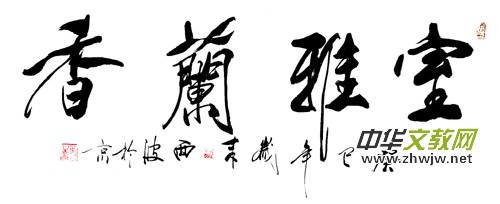 室雅蘭香
癸巳年歲西波於京
中华文教网
www.zhwjw.net